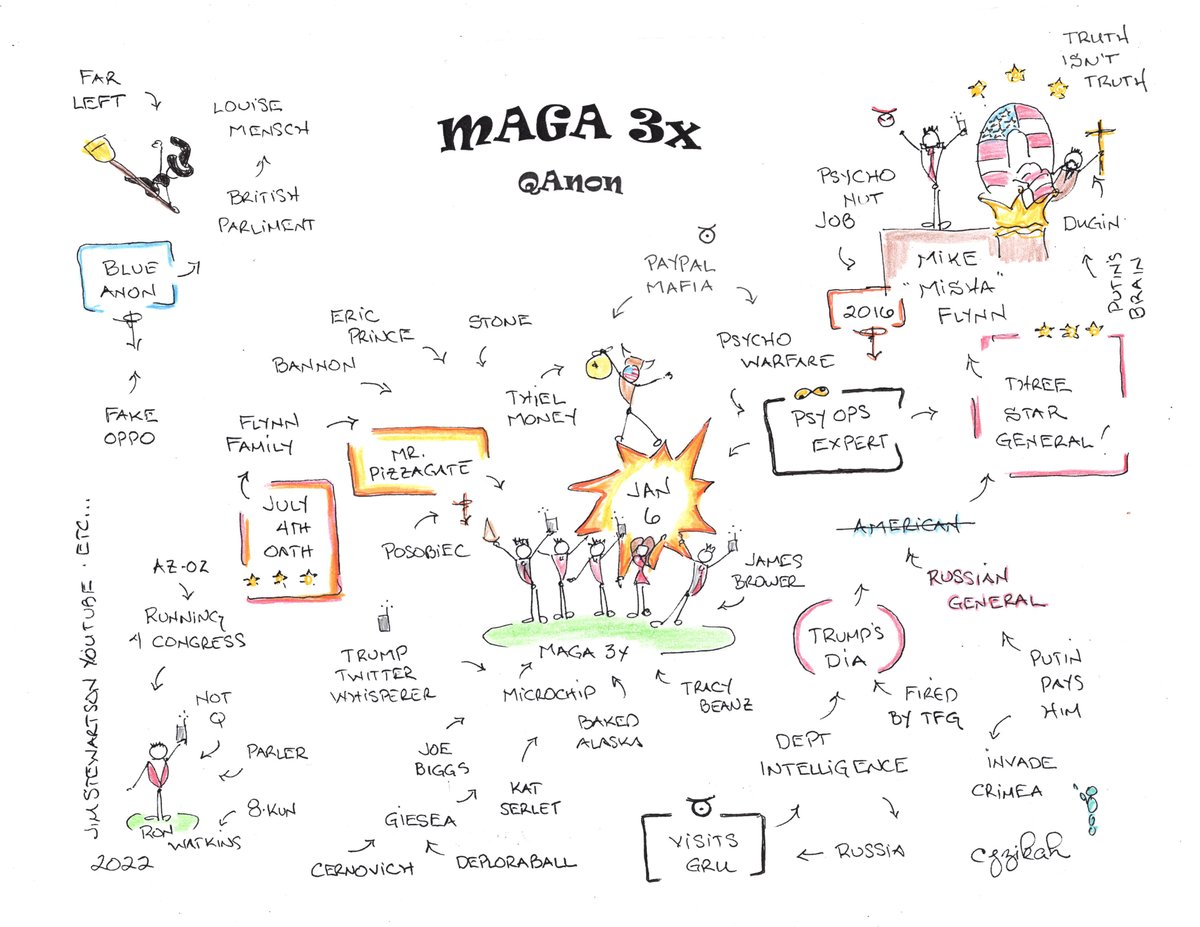 MAGA 3x
QAnon
FAR
LEFT
LOUISE
MENSCH
BRITISH
PARLIMENT
BLUE
ANON
FAKE
OPPO
TRUTH
ISN'T
TRUTH
PSYCHO
NUT
JOB
DUGIN
PUTIN'S
BRAIN
MIKE
"MISHA"
FLYNN
2016
PAYPAL
MAFIA
ERIC
PRINCE
STONE
BANNON
THIEL
MONEY
PSYCHO
WARFARE
PSY OPS
EXPERT
THREE
STAR
GENERAL!
FLYNN
FAMILY
MR.
PIZZAGATE
JULY
4TH
OATH
POSOBIEC
JAN
6
AMERICAN
RUSSIAN
GENERAL
JAMES
BROWER
AZ-02
RUNNING
4 CONGRESS
TRUMP
TWITTER
WHISPERER
MAGA 3X
MICROCHIP
BAKED
ALASKA
TRACY
BEANZ
TRUMP'S
DIA
FIRED
BY TFG
PUTIN
PAYS
HIM
INVADE
CRIMEA
DEPT
INTELLIGENCE
NOT
Q
PARLER
8·KUN
RON
WATKINS
JOE
BIGGS
KAT
SERLET
GIESEA
CERNOVICH
DEPLORABALL
VISITS
GRU
RUSSIA
JIM STEWARTSON YOUTUBE · ETC...
2022
czzikah